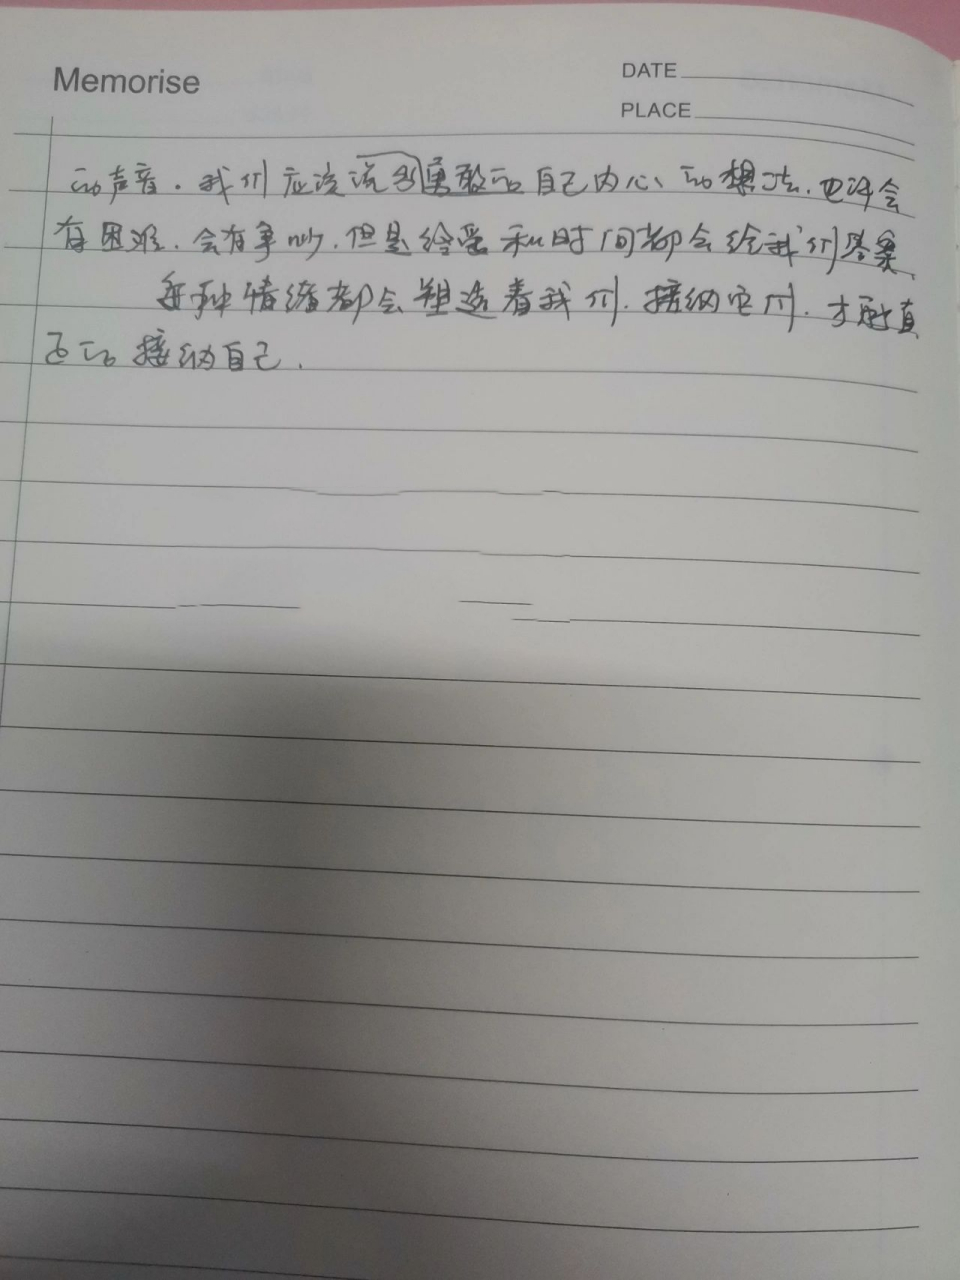 Memorise
DATE
PLACE
的声音.我们应该说出勇敢的自己内心的想法.也许会
有困难.会有争吵.但是给爱和时间都会给我们答案.
每种情绪都会塑造着我们.接纳它们.才敢真
正的接纳自己.